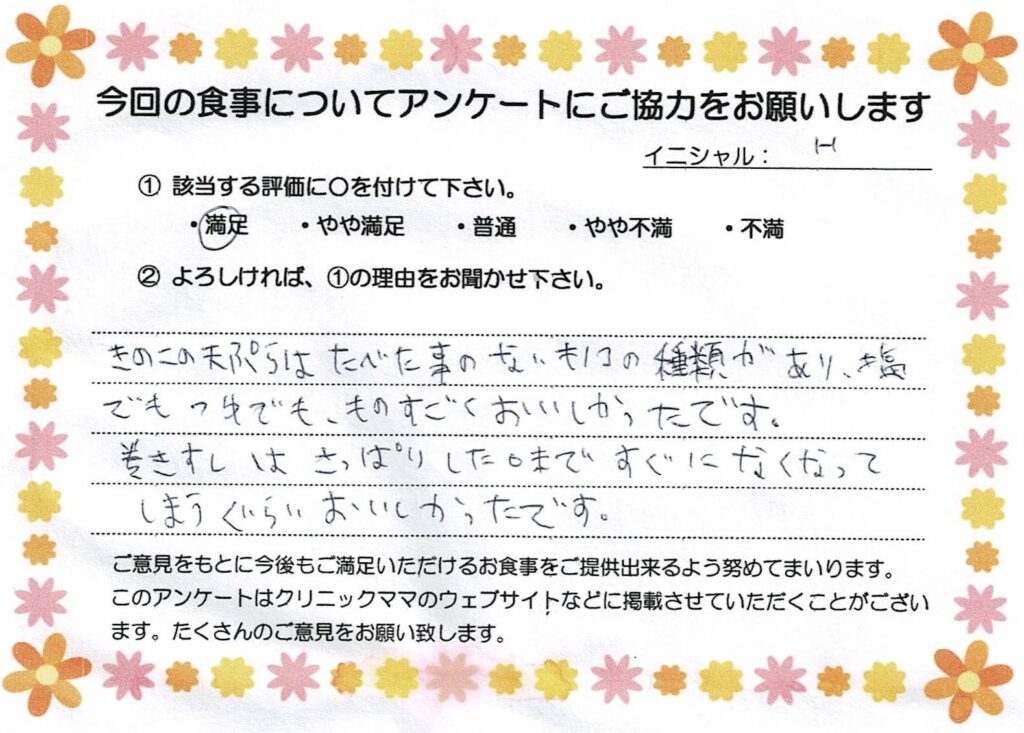 今回の食事についてアンケートにご協力をお願いします
イニシャル： H
① 該当する評価に○を付けて下さい。
・満足 ・やや満足 ・普通 ・やや不満 ・不満
② よろしければ、①の理由をお聞かせ下さい。
きのこの天ぷらは たべた事の ないきのこの 種類が あり、塩
でも つゆでも、ものすごく おいしかったです。
巻きずし は さっぱり した味で すぐに なくなって
しまうぐらい おいしかったです。
ご意見をもとに今後もご満足いただけるお食事をご提供出来るよう努めてまいります。
このアンケートはクリニックママのウェブサイトなどに掲載させていただくことがござい
ます。たくさんのご意見をお願い致します。